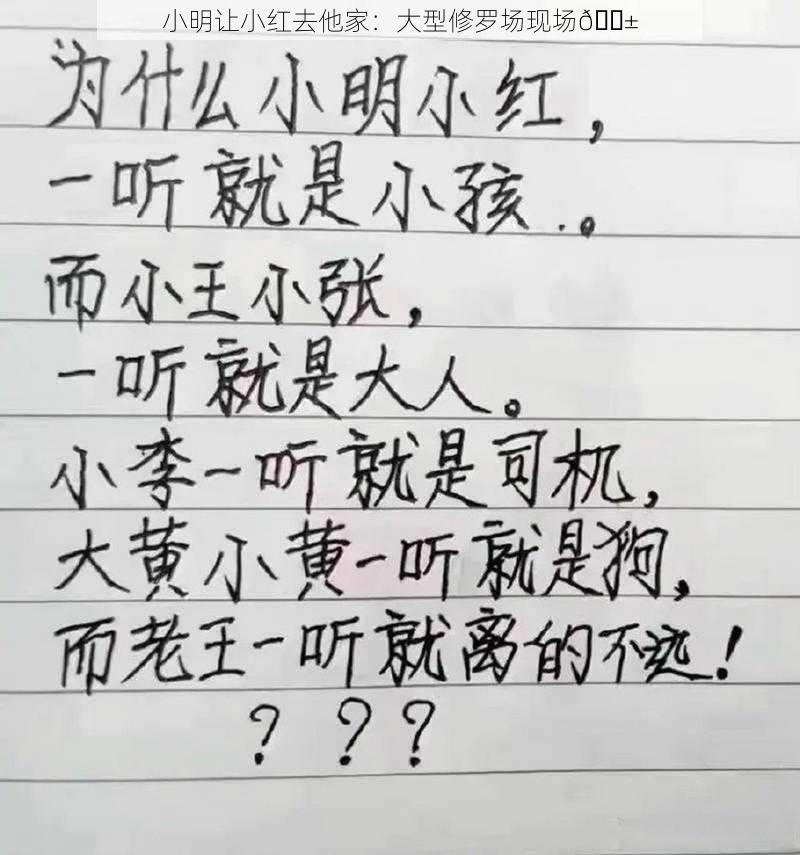 小明让小红去他家：大型修罗场现场ð±
为什么小明小红，
一听就是小孩．。
而小王小张，
一听就是大人。
小李一听就是司机，
大黄小黄一听就是狗，
而老王一听就离的不远！
？？？